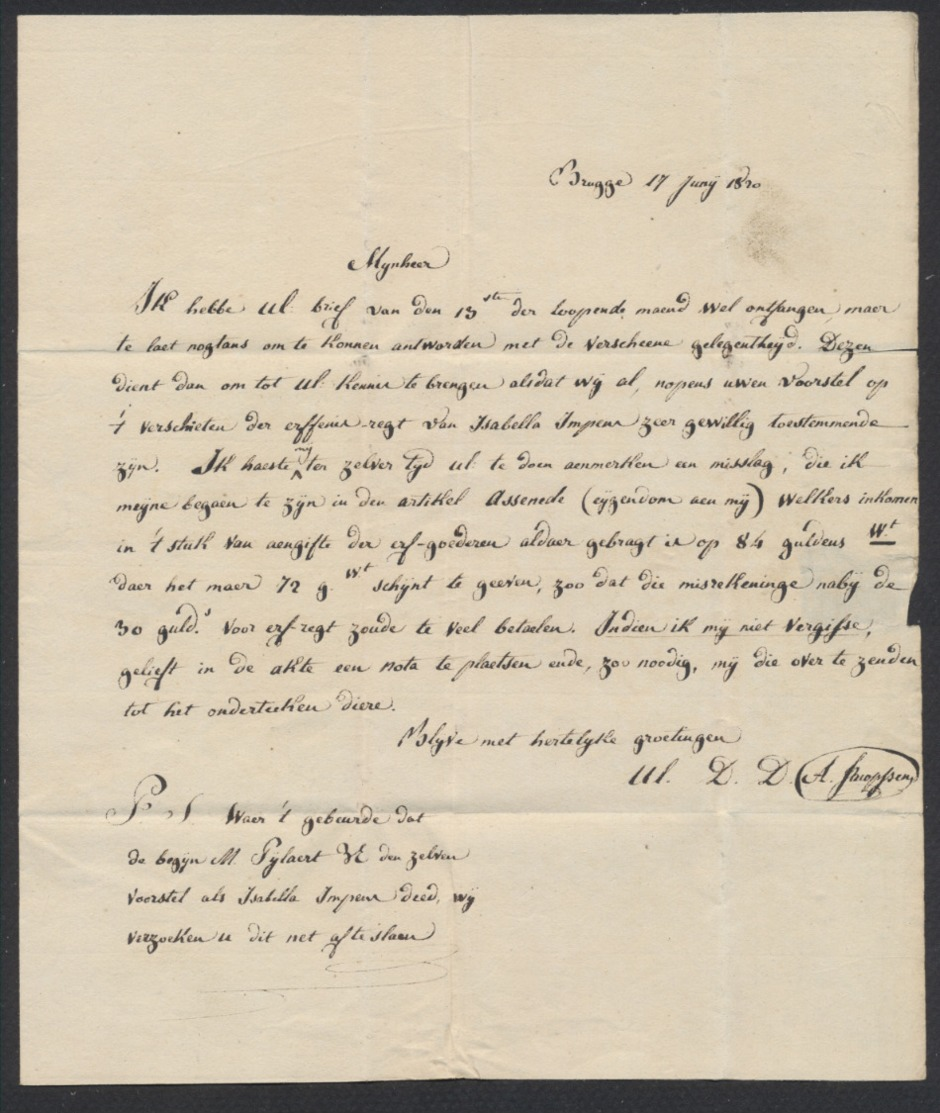 Brugge 17 Junÿ 1820
Mynheer
Ik hebbe Ul. brief van den 13ste der loopende maend wel ontfangen maer
te laet nogtans om te konnen antworden met de verscheene gelegentheyd. Dezen
dient dan om tot Ul. kennis te brengen alsdat wÿ al, nopens uwen voorstel op
't verschieten der erffenis-regt van Isabella Impens zeer gewillig toestemmende
zÿn. Ik haeste mÿ ter zelver tyd Ul. te doen aenmerken een misslag, die ik
meÿne begaen te zÿn in den artikel Assenede (eÿgendom aen mÿ) welkers inkomen
in 't stuk van aengifte der erf-goederen aldaer gebragt is op 84 guldens Wt
daer het maer 72 g. Wt schÿnt te geeven, zoo dat die misrekeninge nabÿ de
30 guld.s voor erf-regt zoude te veel betaelen. Indien ik mÿ niet vergisse,
gelieft in de akte een nota te plaetsen ende, zoo noodig, mÿ die over te zenden
tot het onderteeken diere.
Blyve met hertelyke groetingen
Ul. D. D. A.
P S. Waer 't gebeurde dat
de begÿn M. Pÿlaert den zelven
voorstel als Isabella Impens deed, wÿ
verzoeken u dit net af te slaen